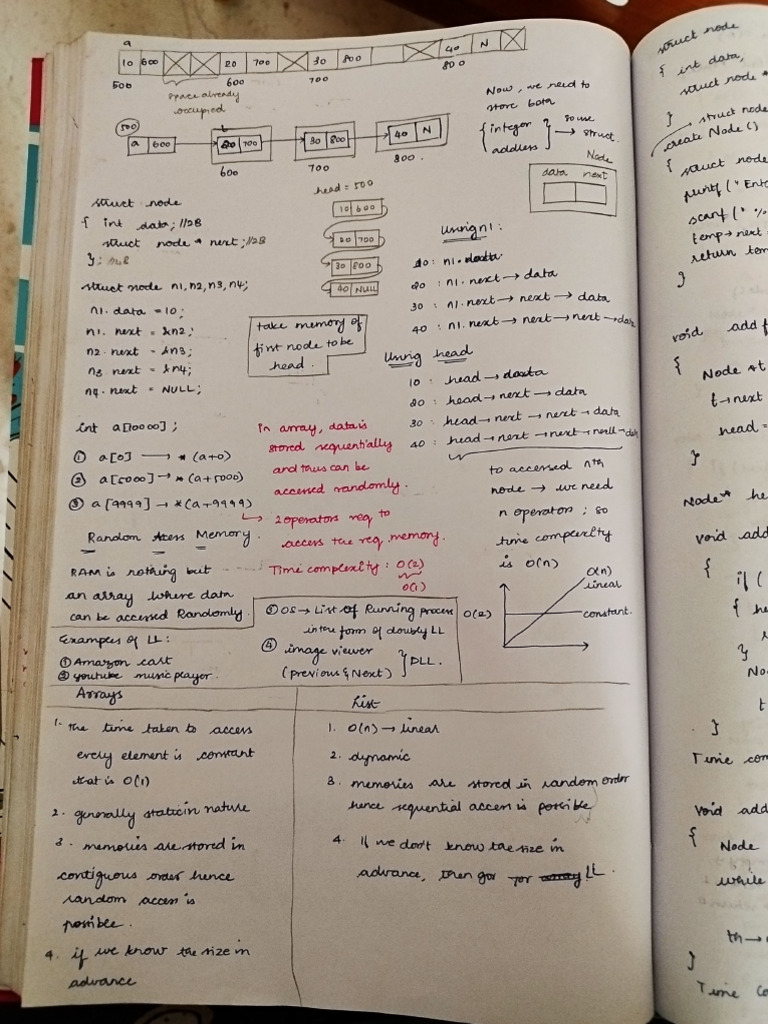 a
10 600 20 700 30 800 40 N
500 600 700 800
space already
occupied
500
a 600 20 700 30 800 40 N
600 700 800.
Now, we need to
store both
{ integer
address } so use
→ struct.
Node
data next
head = 500
10 600
20 700
30 800
40 NULL
struct node
{ int data; //2B
struct node * next; //2B
};
struct node n1, n2, n3, n4;
n1. data = 10;
n1. next = &n2;
n2. next = &n3;
n3. next = &n4;
n4. next = NULL;
take memory of
first node to be
head.
Using n1 :
10 : n1. data
20 : n1. next → data
30 : n1. next → next → data
40 : n1. next → next → next → data
Using head
10 : head → data
20 : head → next → data
30 : head → next → next → data
40 : head → next → next → next → data
int a[10000] ;
① a[0] → * (a+0)
② a[5000] → * (a+5000)
③ a[9999] → * (a+9999)
In array, data is
stored sequentially
and thus can be
accessed randomly.
↳ 2 operators req to
access the req memory.
Time complexity : O(2)
O(1)
to accessed nth
node → we need
n operators ; so
time complexity
is O(n)
O(n)
linear
O(2) constant.
Random Acess Memory.
RAM is nothing but
an array where data
can be accessed Randomly.
Examples of LL :
① Amazon cart
② youtube music player.
③ OS → List of Running process
in the form of doubly LL
④ image viewer
(previous & Next) } DLL.
Arrays
1. the time taken to access
every element is constant
that is O(1)
2. generally static in nature
3. memories are stored in
contiguous order hence
random access is
possible.
4. if we know the size in
advance
List
1. O(n) → linear
2. dynamic
3. memories are stored in random order
hence sequential access is possible
4. If we don't know the size in
advance, then go for LL.
struct node
{ int data,
struct node *
}
struct node
create Node()
{
struct node
printf ( " Ent
scanf ( " %
temp → next =
return tem
}
void add f
{
Node *t
t → next
head =
}
Node* he
void add
{
if (
{ he
}
No
t
}
Time com
void add
{
Node
while
}
Time co